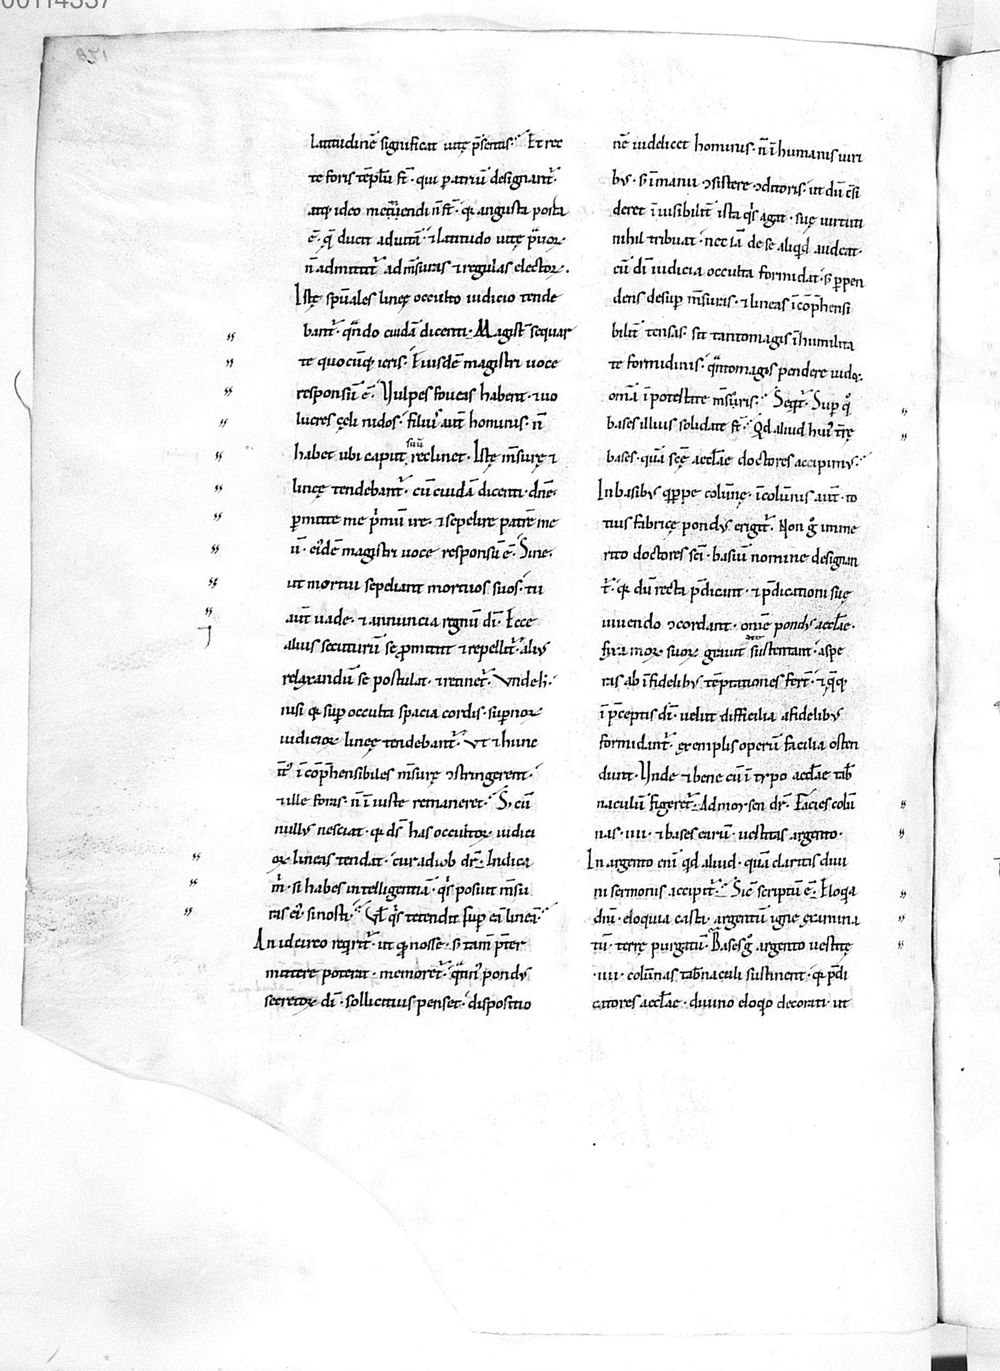 latitudinē significat uitę p̄sentis. Et rec
te foris tēplū st̄. qui p atriū designant̄.
atq; ideo metiendi n̄ st̄. qr angusta porta
ē. q̄ ducit ad uitā. & latitudo uitę p̄uoꝝ
n̄ admittit̄ ad m̄suras & regulas electoꝝ.
Istę sp̄uales lineę occulto iudicio tende
bant̄. qn̄do cuidā dicenti. Magist̄ sequar
te quocūq; ieris. Eiusdē magistri uoce
responsū ē. Vulpes foueas habent. & uo
lucres cęli nidos. filius aut̄ hominis. n̄
habet ubi caput suū reclinet. Istę m̄surę &
lineę tendebant̄. cū cuidā dicenti. dn̄e.
p̄mitte me p̄mū ire. & sepelire patrē me
ū. eidē magistri uoce responsū ē. Sine.
ut mortui sepeliant mortuos suos. tu
aut̄ uade. & annuncia regnū dī. Ecce
alius secuturū se p̄mittit & repellit̄. alius
relaxandū se postulat. & retinet̄. Vnde h̄.
nisi qr sup occulta spacia cordis. supnoꝝ
iudicioꝝ lineę tendebant̄. Vt & hunc
īcōp̄hensibiles m̄surę ↄstringerent.
& ille foras. n̄ iniuste remaneret. S; cū
nullus nesciat. qr ds̄ has occultoꝝ iudici
oꝝ lineas tendat. cur ad iob dr̄. Indica
m̄. si habes intelligentiā. qs̄ posuit m̄su
ras ei'. si nosti. Vl̄ qs̄ tetendit sup eā lineā.
An idcirco reqrit̄. ut q nosse. s; tam p̄ter
mittere poterat. memoret̄. qn̄ti pondus
secretoꝝ dī. sollicitius penset. dispositio
nē uidelicet hominis. n̄ ī humanis uiri
bus. s; ī manu ↄsistere ↄditoris. ut dū cs̄i
deret īuisibilit̄ ista qs̄ agat. suę uirtuti
nihil tribuat. nec iā de se aliqd audeat.
cū dī iudicia occulta formidat. s; ppen
dens desup m̄suris. & lineas īcōp̄hensi
bilit̄ tensas. sit tanto magis ī humilita
te formidinis. qn̄to magis pendere uidet
om̄ia ī potestate m̄suris. Seqt̄. Sup q̄
bases illius solidate st̄. Qd aliud hui' tr̄ę
bases. quā scę aeccl̄ae doctores accipim'.
In basibus qppe colūnę. ī colūnis aut̄. to
tius fabricę pondus erigit̄. Non g̊ imme
rito doctores sci. basiū nomine designan
t̄. qr dū recta p̄dicant. & p̄dicationi suę
uiuendo ↄcordant. om̄e pondus aeccl̄ae.
fixa moꝝ suoꝝ grauitate sustentant. aspe
ras ab īfidelibus tēptationes fert̄. & qq;
ī p̄ceptis dī. uelut difficilia a fidelibus
formidant̄. exemplis operū facilia osten
dunt. Vnde & bene cū ī typo aeccl̄ae tab̄
naculū figeret̄. ad moysen dr̄. Facies colū
nas .iiii. & bases earū. uestitas argento.
In argento eni qd aliud. quā claritas diui
ni sermonis accipit̄. Sic scriptū ē. Eloqa
dn̄i. eloquia casta. argentū igne examina
tū. terrę purgatū. Bases g̊ argento uestitę
.iiii. colūnas tab̄naculi sustinent. qr p̄di
catores aeccl̄ae. diuino eloqo decorati. ut